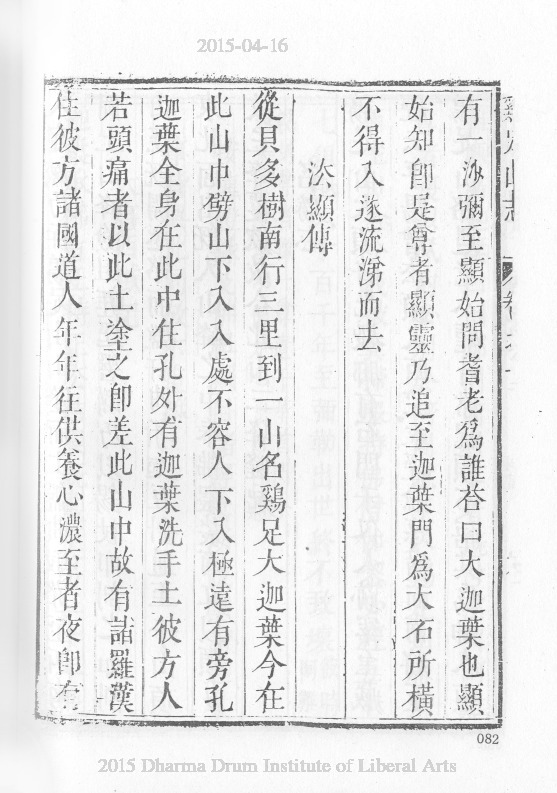 2015-04-16
有一沙彌至顯始問耆老爲誰荅曰大迦葉也顯
始知卽是尊者顯靈乃追至迦葉門爲大石所橫
不得入遂流涕而去
法顯傳
從貝多樹南行三里到一山名鷄足大迦葉今在
此山中劈山下入入處不容人下入極遠有旁孔
迦葉全身在此中住孔外有迦葉洗手土彼方人
若頭痛者以此土塗之卽差此山中故有諸羅漢
住彼方諸國道人年年往供養心濃至者夜卽有
082
2015 Dharma Drum Institute of Liberal Arts